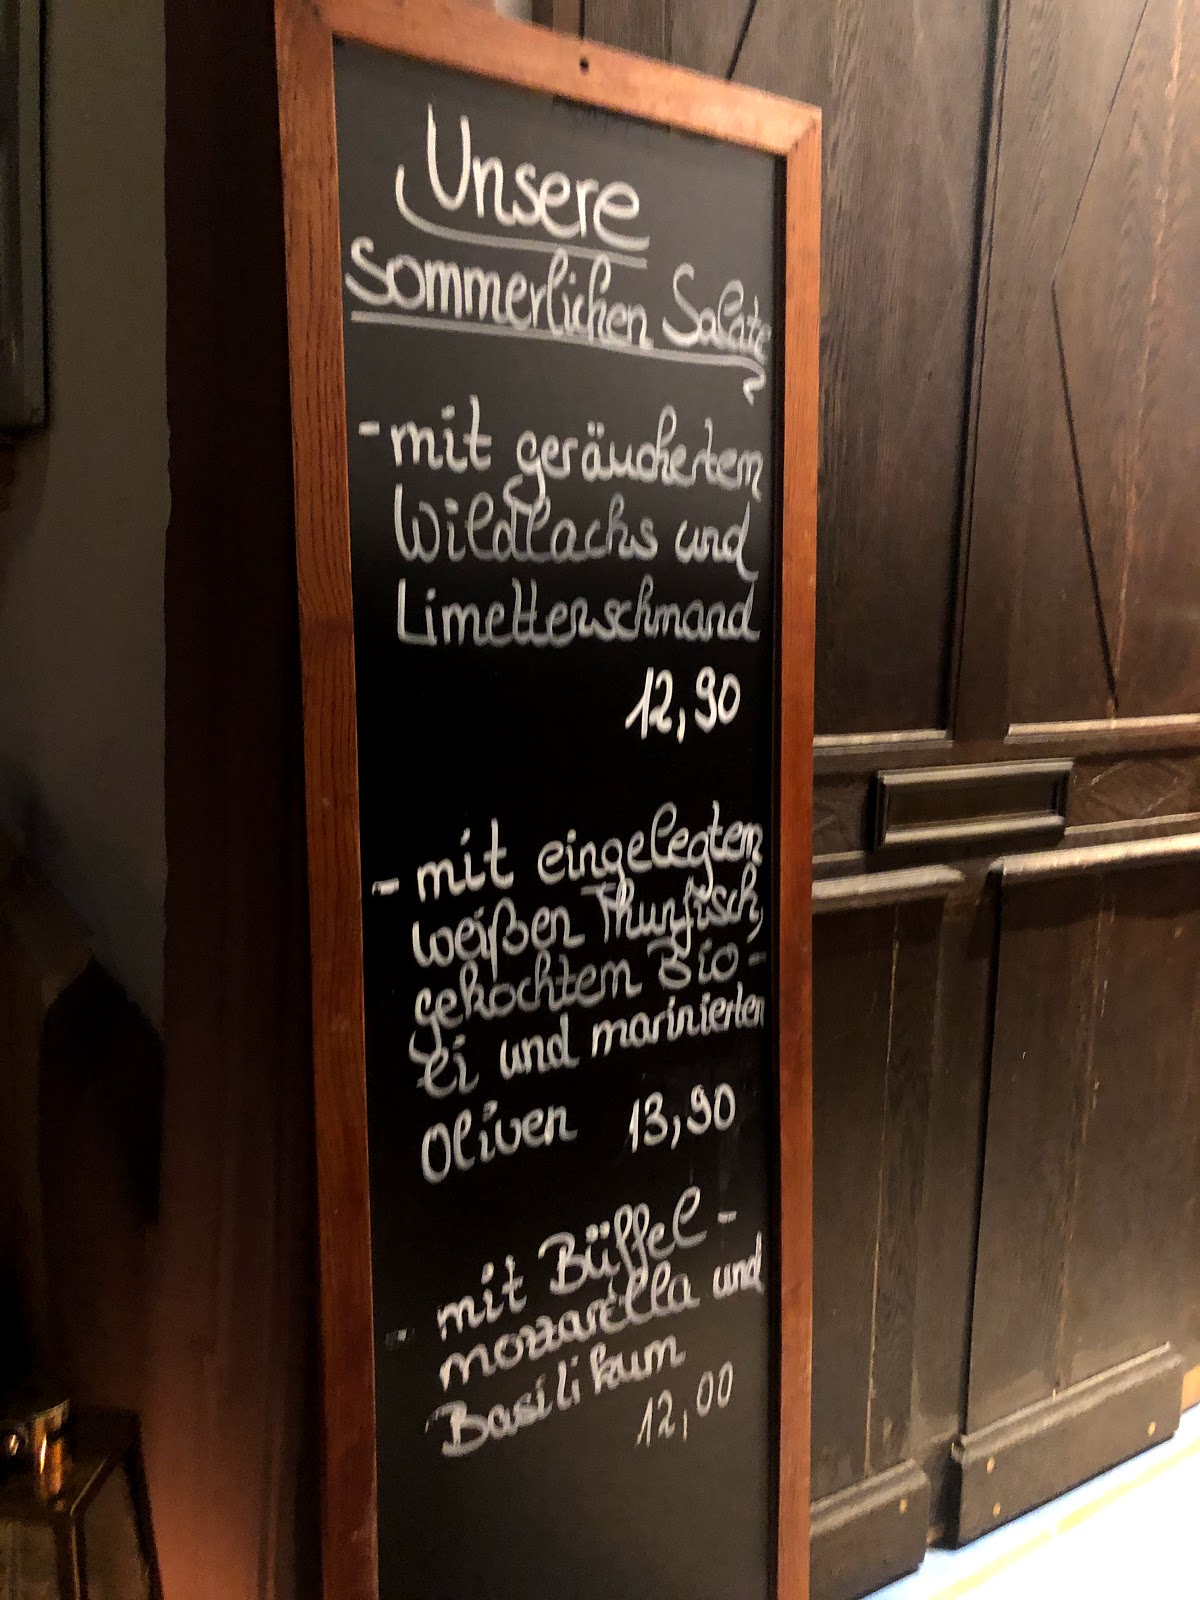 Unsere
Sommerlichen Salate
- mit geräuchertem
Wildlachs und
Limettenschmand
12,90
- mit eingelegtem
weißen Thunfisch,
gekochtem Bio-
ei und marinierten
Oliven 13,90
- mit Büffel-
mozzarella und
Basilikum
12,00